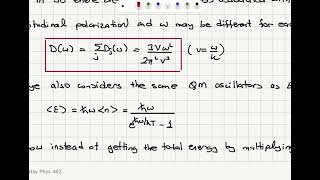 tudinal polarization and ω may be different for ea
D(ω) = Σ Dj(ω) = 3Vω² / 2π²v³ ( v = ω/k )
j
ye also considers the same QM oscillators as E
⟨E⟩ = ħω⟨n⟩ = ħω / e^{ħω/kT} - 1
now instead of getting the total energy by multiplying
tay Phys 462